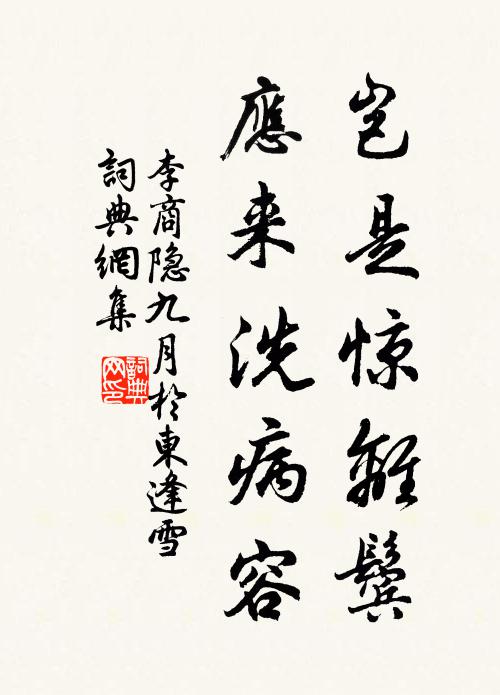 岂是惊離鬓
應来洗病容
李商隐九月於東逢雪
詞典網集
詞典网印